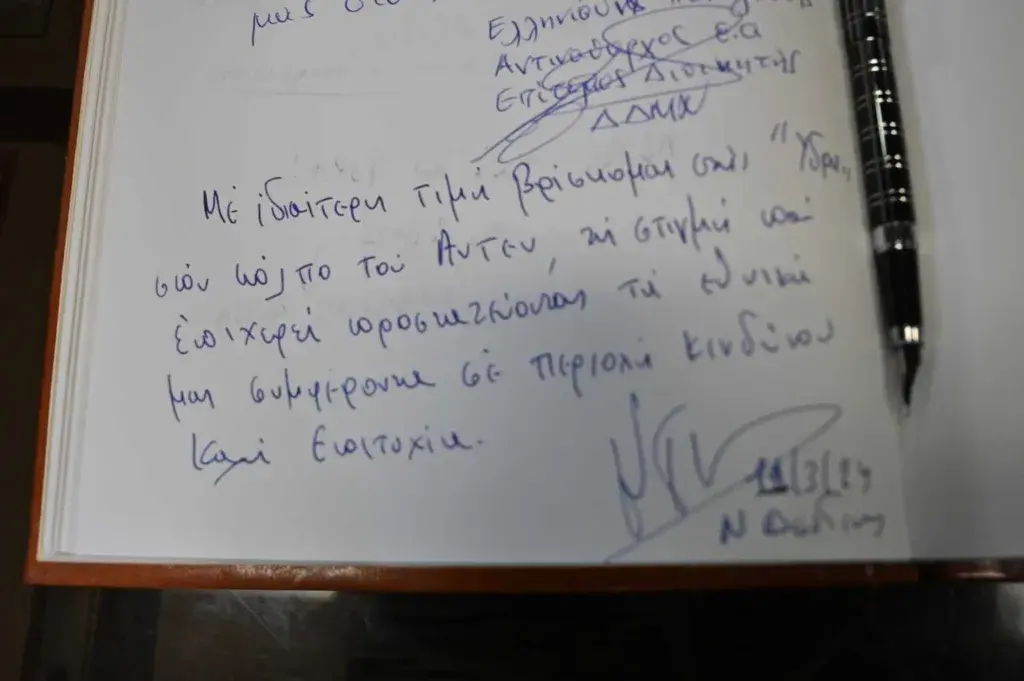 μας στο
Ελληνιδης
Αντιναύαρχος ε.α
Επίτιμος Διοικητής
ΔΔΜΧ
Με ιδιαίτερη τιμή βρίσκομαι στην "Υδρα"
στον κόλπο του Αντεν, τη στιγμή που
επιχερεί προστατεύοντας τα εθνικά
μας συμφέροντα σε περιοχή κινδύνου
Καλή Επιτυχία.
11/3/24
Ν Δένδιας